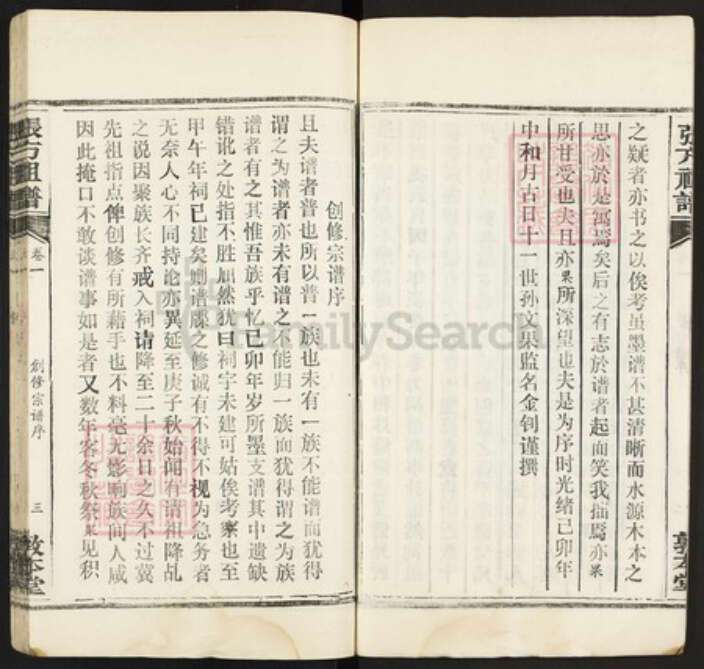 之疑者亦书之以俟考虽墨谱不甚清晰而水源木本之
思亦於是寓焉矣后之有志於谱者起而笑我拙焉亦果
所甘受也夫且亦果所深望也夫是为序时光绪己卯年
中和月古日十一世孙文果监名金钊谨撰
敦本堂
创修宗谱序
且夫谱者普也所以普一族也未有一族不能谱而犹得
谓之为谱者亦未有谱之不能归一族而犹得谓之为族
谱者有之其惟吾族乎忆己卯年岁所墨支谱其中遗缺
错讹之处指不胜屈然犹曰祠字未建可姑俟考察也至
甲午年祠已建矣则谱牒之修诚有不得不视为急务者
无奈人心不同持论亦異延至庚子秋始闻有请祖降乩
之说因聚族长齐戒入祠请降至二十余日之久不过冀
先祖指点俾创修有所藉手也不料毫无影响族间人咸
因此掩口不敢谈谱事如是者又数年客冬秋祭果见积
張方祖谱
卷一
創修宗谱序
三
敦本堂
FamilySearch